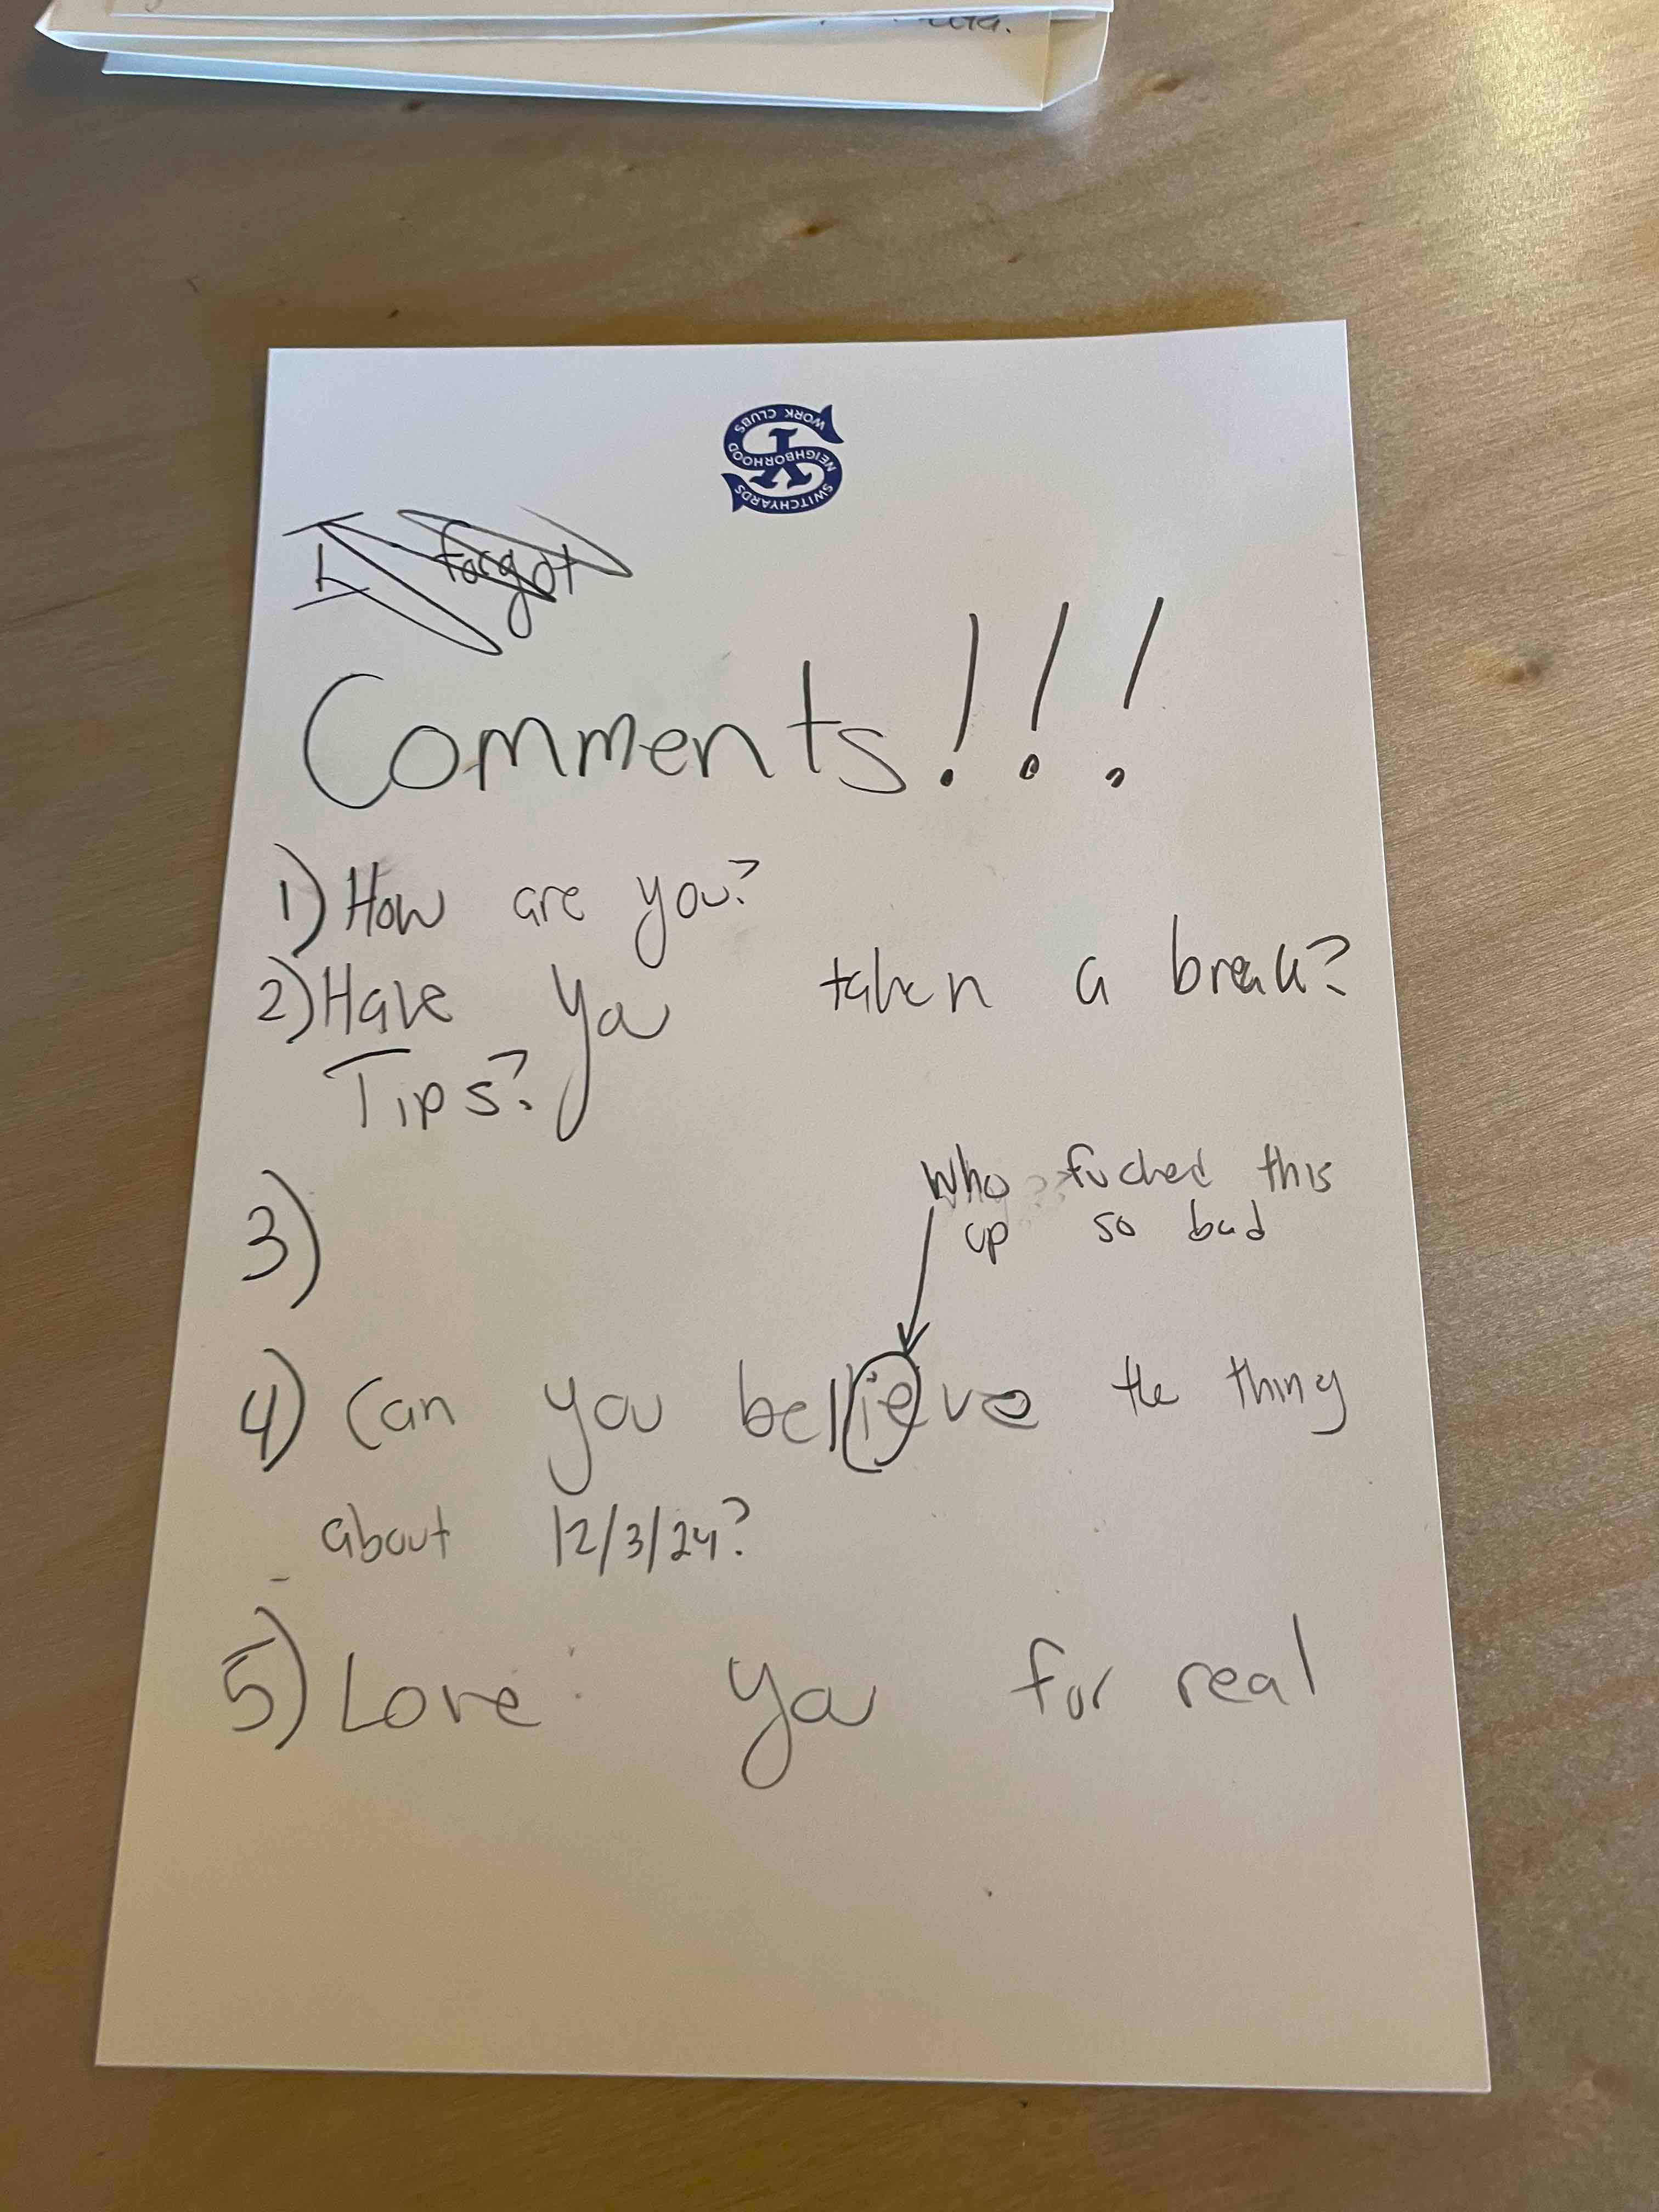 WORK CLUBS
NEIGHBORHOOD
SWITCHYARDS
I forgot
Comments!!!
1) How are you?
2) Have you taken a break?
Tips?
3)
Who fucked this
up so bad
4) Can you bellieve the thing
about 12/3/24?
5) Love you for real